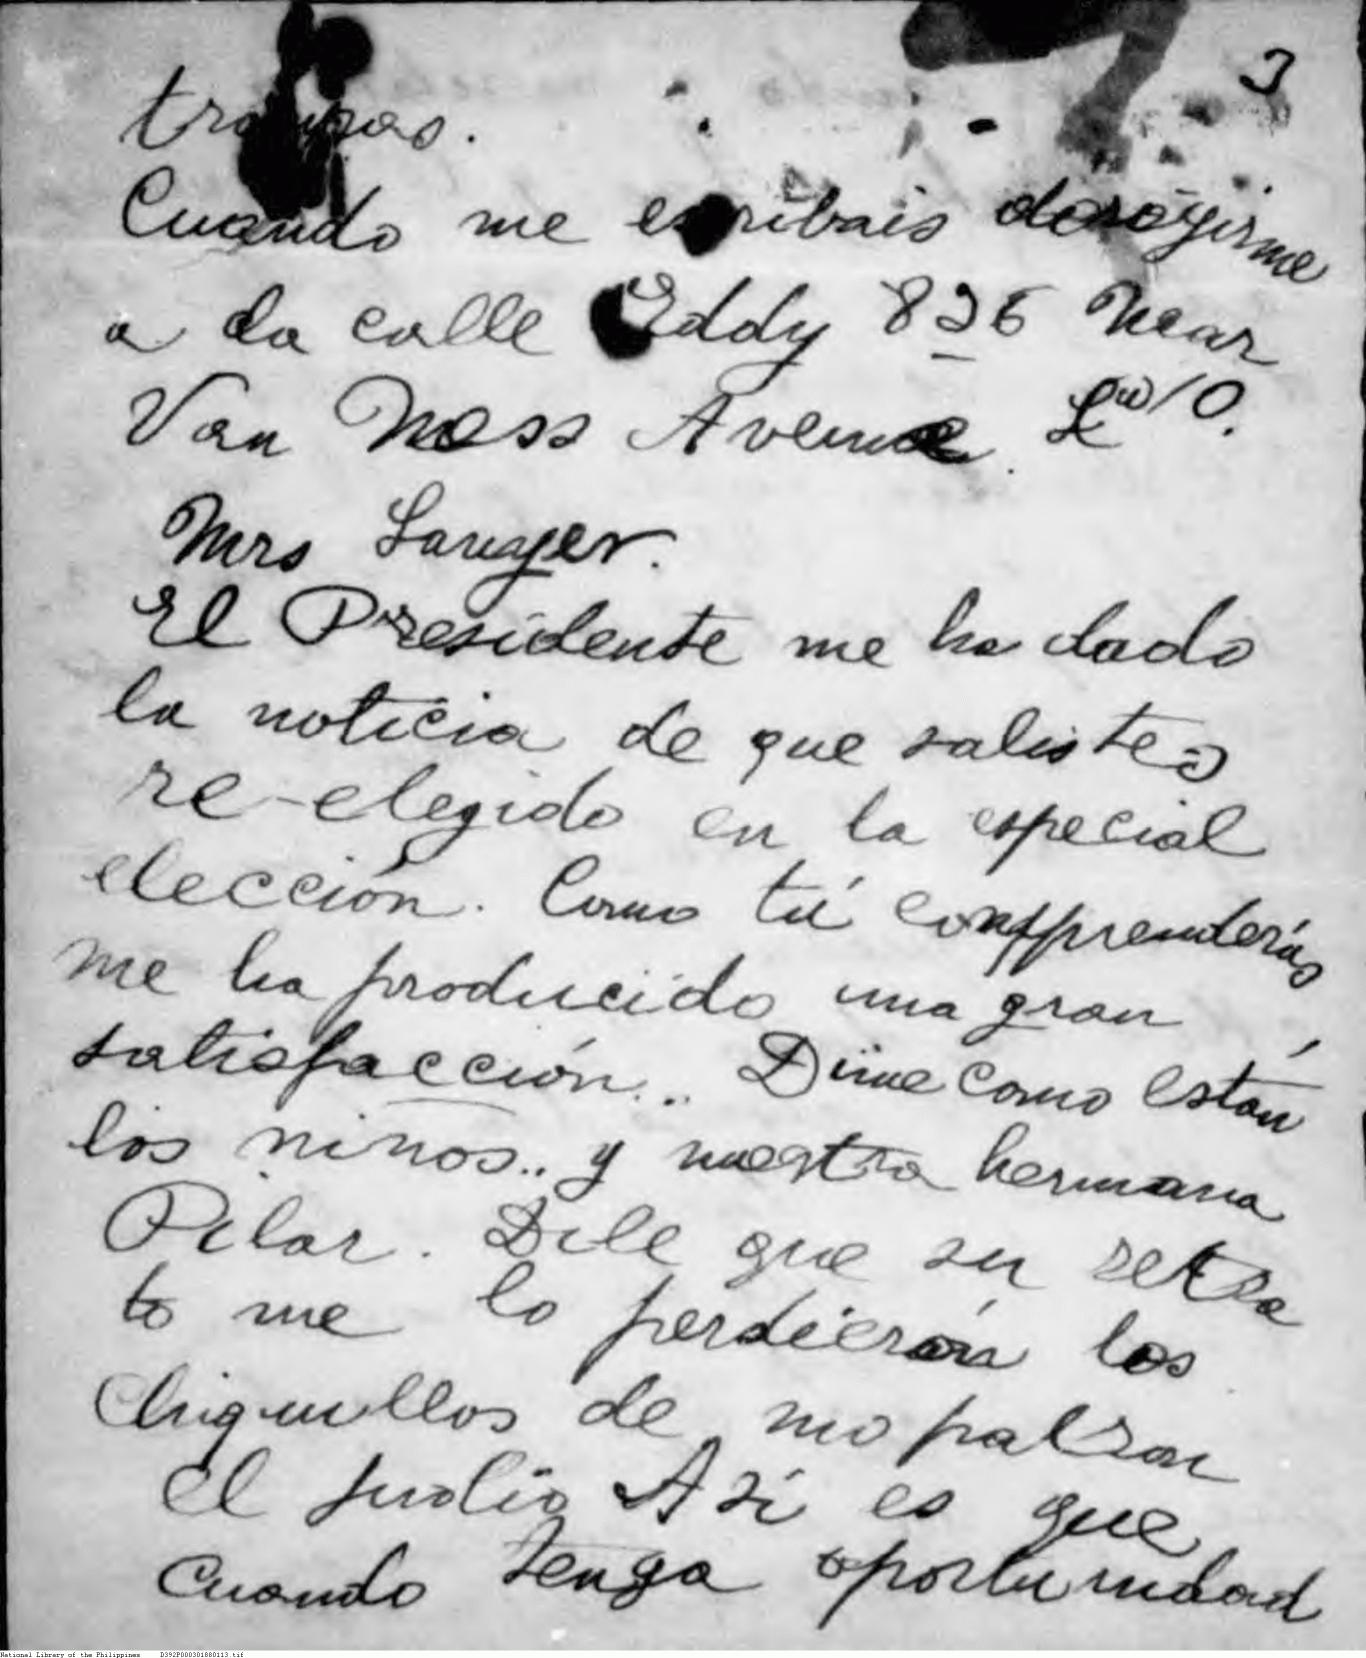 3
tropas.
Cuando me escribais dirigirme
a la calle Eddy 826 Near
Van Ness Avenue. C/O.
Mrs Sawyer.
El Presidente me ha dado
la noticia de que salistes
re-elegido en la especial
elección. Como tú comprenderás
me ha producido una gran
satisfacción... Dime como están
los niños.. y nuestra hermana
Pilar. Dile que su retra
to me lo perdieron los
chiquillos de mo patron
el judio Asi es que
cuando tenga oportunidad
National Library of the Philippines D392P000301880113.tif